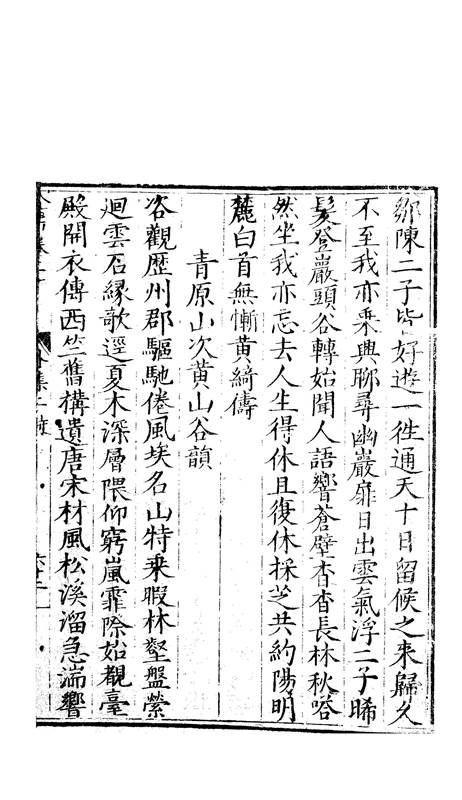 鄒陳二子皆好遊一徃通天十日留候之來歸久
不至我亦乘興聊尋幽巖扉日出雲氣浮二子晞
髪登巖頭谷轉始聞人語響蒼壁杳杳長林秋嗒
然坐我亦忘去人生得休且復休採芝共約陽明
麓白首無慚黄綺儔
青原山次黄山谷韻
咨觀歴州郡驅馳倦風埃名山特乘暇林壑盤縈
迴雲石縁欹逕夏木深層隈仰窮嵐霏際始覩臺
殿開衣傳西竺舊構遺唐宋材風松溪溜急湍響